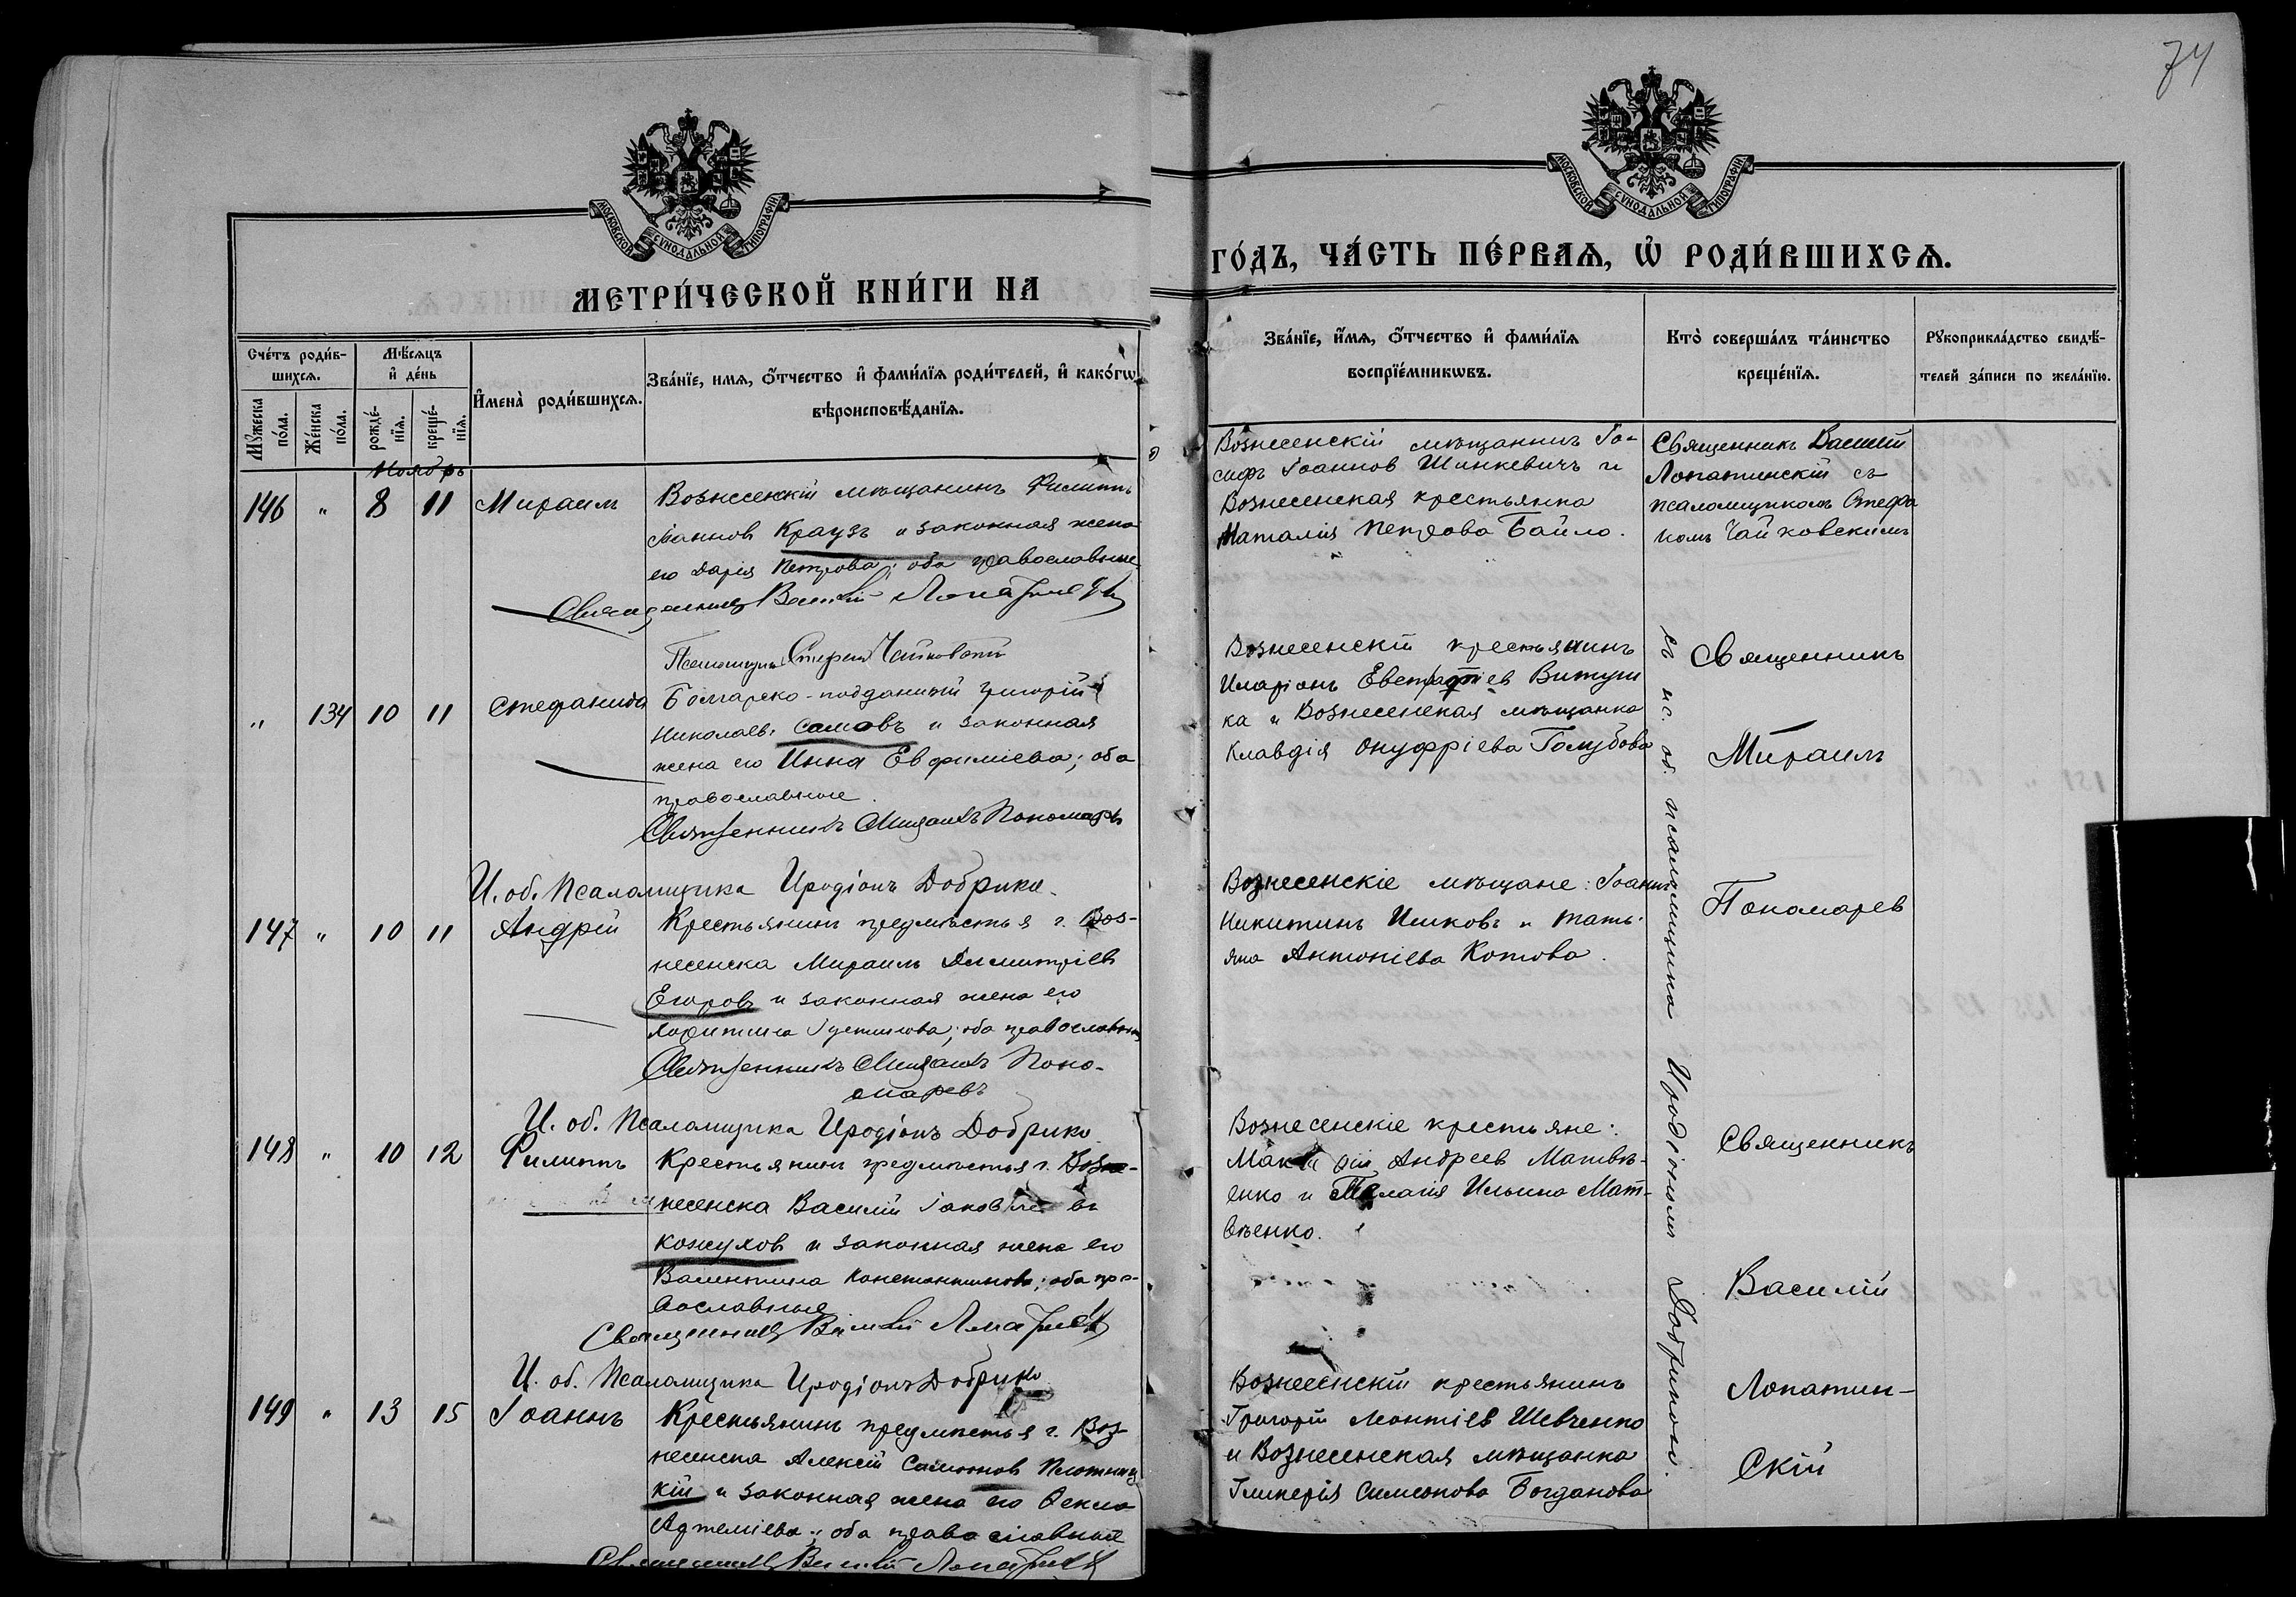 74
МОСКОВСКОЙ СУНОДАЛЬНОЙ ТИПОГРАФІИ
МОСКОВСКОЙ СУНОДАЛЬНОЙ ТИПОГРАФІИ
МЕТРИ́ЧЕСКОЙ КНИ́ГИ НА
ГО́ДЪ, ЧА́СТЬ ПЕ́РВАѦ, Ѡ҆ РОДИ́ВШИХСѦ.
Сче́тъ роди́в-
шихсѧ.
Мѣ́сѧцъ
и҆ де́нь
Мꙋ́жеска
по́ла.
Же́нска
по́ла.
рожде́-
нїѧ.
креще́-
нїѧ.
И҆мена̀ роди́вшихсѧ.
Зва́нїе, имѧ, ѻ҆́тчество и҆ фами́лїѧ роди́телей, и҆ како́гѡ
вѣроисповѣ́данїѧ.
Зва́нїе, и҆́мѧ, ѻ҆́тчество и҆ фами́лїѧ
воспрїе́мникѡвъ.
Кто̀ соверша́лъ та́инство
креще́нїѧ.
Рꙋкоприкла́дство свидѣ́-
телей за́писи по жела́нїю.
Ноябрь
146 " 8 11 Михаилъ
Вознесенскій мѣщанинъ Филиппъ
Іаннов Краузъ и законная жена
его Дарія Петрова; оба православные
Священникъ Василій Лопатинскій
Вознесенскій мѣщанинъ Іо-
сифъ Іоаннов Шинкевичъ и
Вознесенская крестьянка
Наталія Петрова Байло.
Священникъ Василій
Лопатинскій съ
псаломщикомъ Стефа
номъ Чайковскимъ
Псаломщикъ Стефанъ Чайковскій
" 134 10 11 Стефанида
Болгарско-подданный Григорій
Николаев. Самовъ и законная
жена его Инна Евфиміева; оба
православные.
Священникъ Михаилъ Пономаревъ
Вознесенскій крестьянинъ
Иларіонъ Евстафіев Витуш
ка и Вознесенская мѣщанка
Клавдія Онуфріева Голубова
Священникъ
Михаилъ
Пономарев
съ ис. об. псаломщика Иродіономъ Добрикою.
И. об. Псаломщика Иродіонъ Добрика.
147 " 10 11 Андрей
Крестьянинъ предмѣстья г. Воз-
несенска Михаилъ Димитріев
Егоровъ и законная жена его
Харитина Іустинова; оба православные
Священникъ Михаилъ Поно-
маревъ
Вознесенскіе мѣщане: Іоаннъ
Никитинъ Ишковъ и Тать-
яна Антоніева Котова.
И. об. Псаломщика Иродіонъ Добрико.
148 " 10 12 Филиппъ
Крестьянинъ предмѣстья г. Возне-
несенска Василій Іаковлевъ
Кожухов и законная жена его
Валентина Константинова; оба пра-
вославные
Священникъ Василій Лопатинскій
Вознесенскіе крестьяне:
Андреев Матвѣ-
енко и Пелагія Ильина Мат-
вѣенко.
Священникъ
Василій
Лопатин-
скій
И. об. Псаломщика Иродіонъ Добрико
149 " 13 15 Іоаннъ
Крестьянинъ предмѣстья г. Воз-
несенска Алексій Самсонов Плотниц
кій и законная жена его Ѳекла
Артеміева; оба православные
Священникъ Василій Лопатинскій
Вознесенскій крестьянинъ
Григорій Леонтіев Шевченко
и Вознесенская мѣщанка
Гликерія Симеонова Богданова